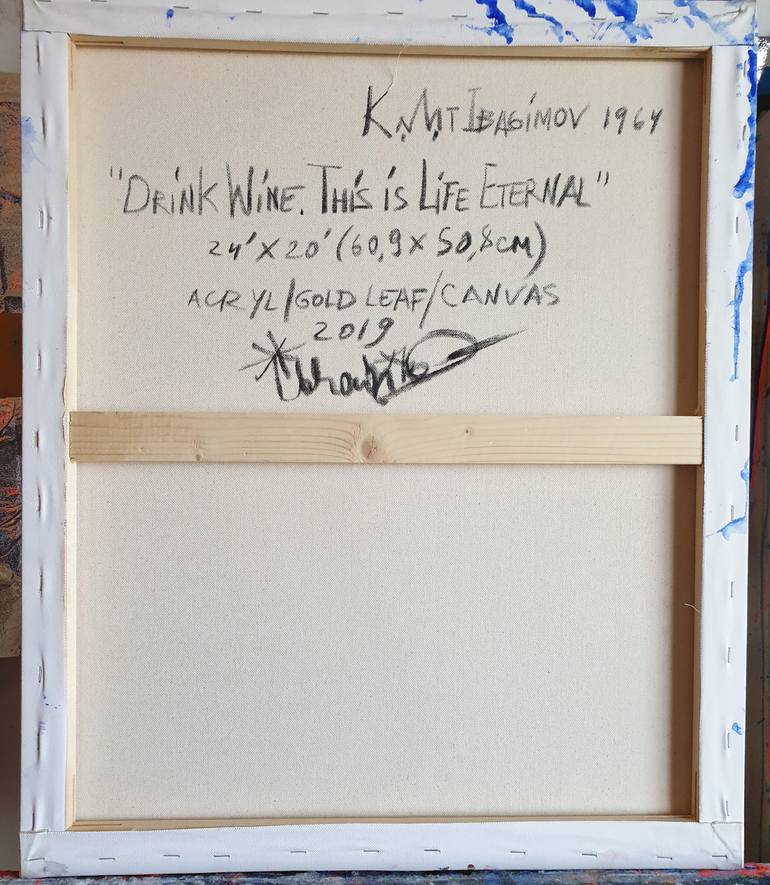 KMT IBAGIMOV 1964
"DRINK WINE. THIS IS LIFE ETERNAL"
24' X 20' (60,9 X 50,8CM)
ACRYL/GOLD LEAF/CANVAS
2019